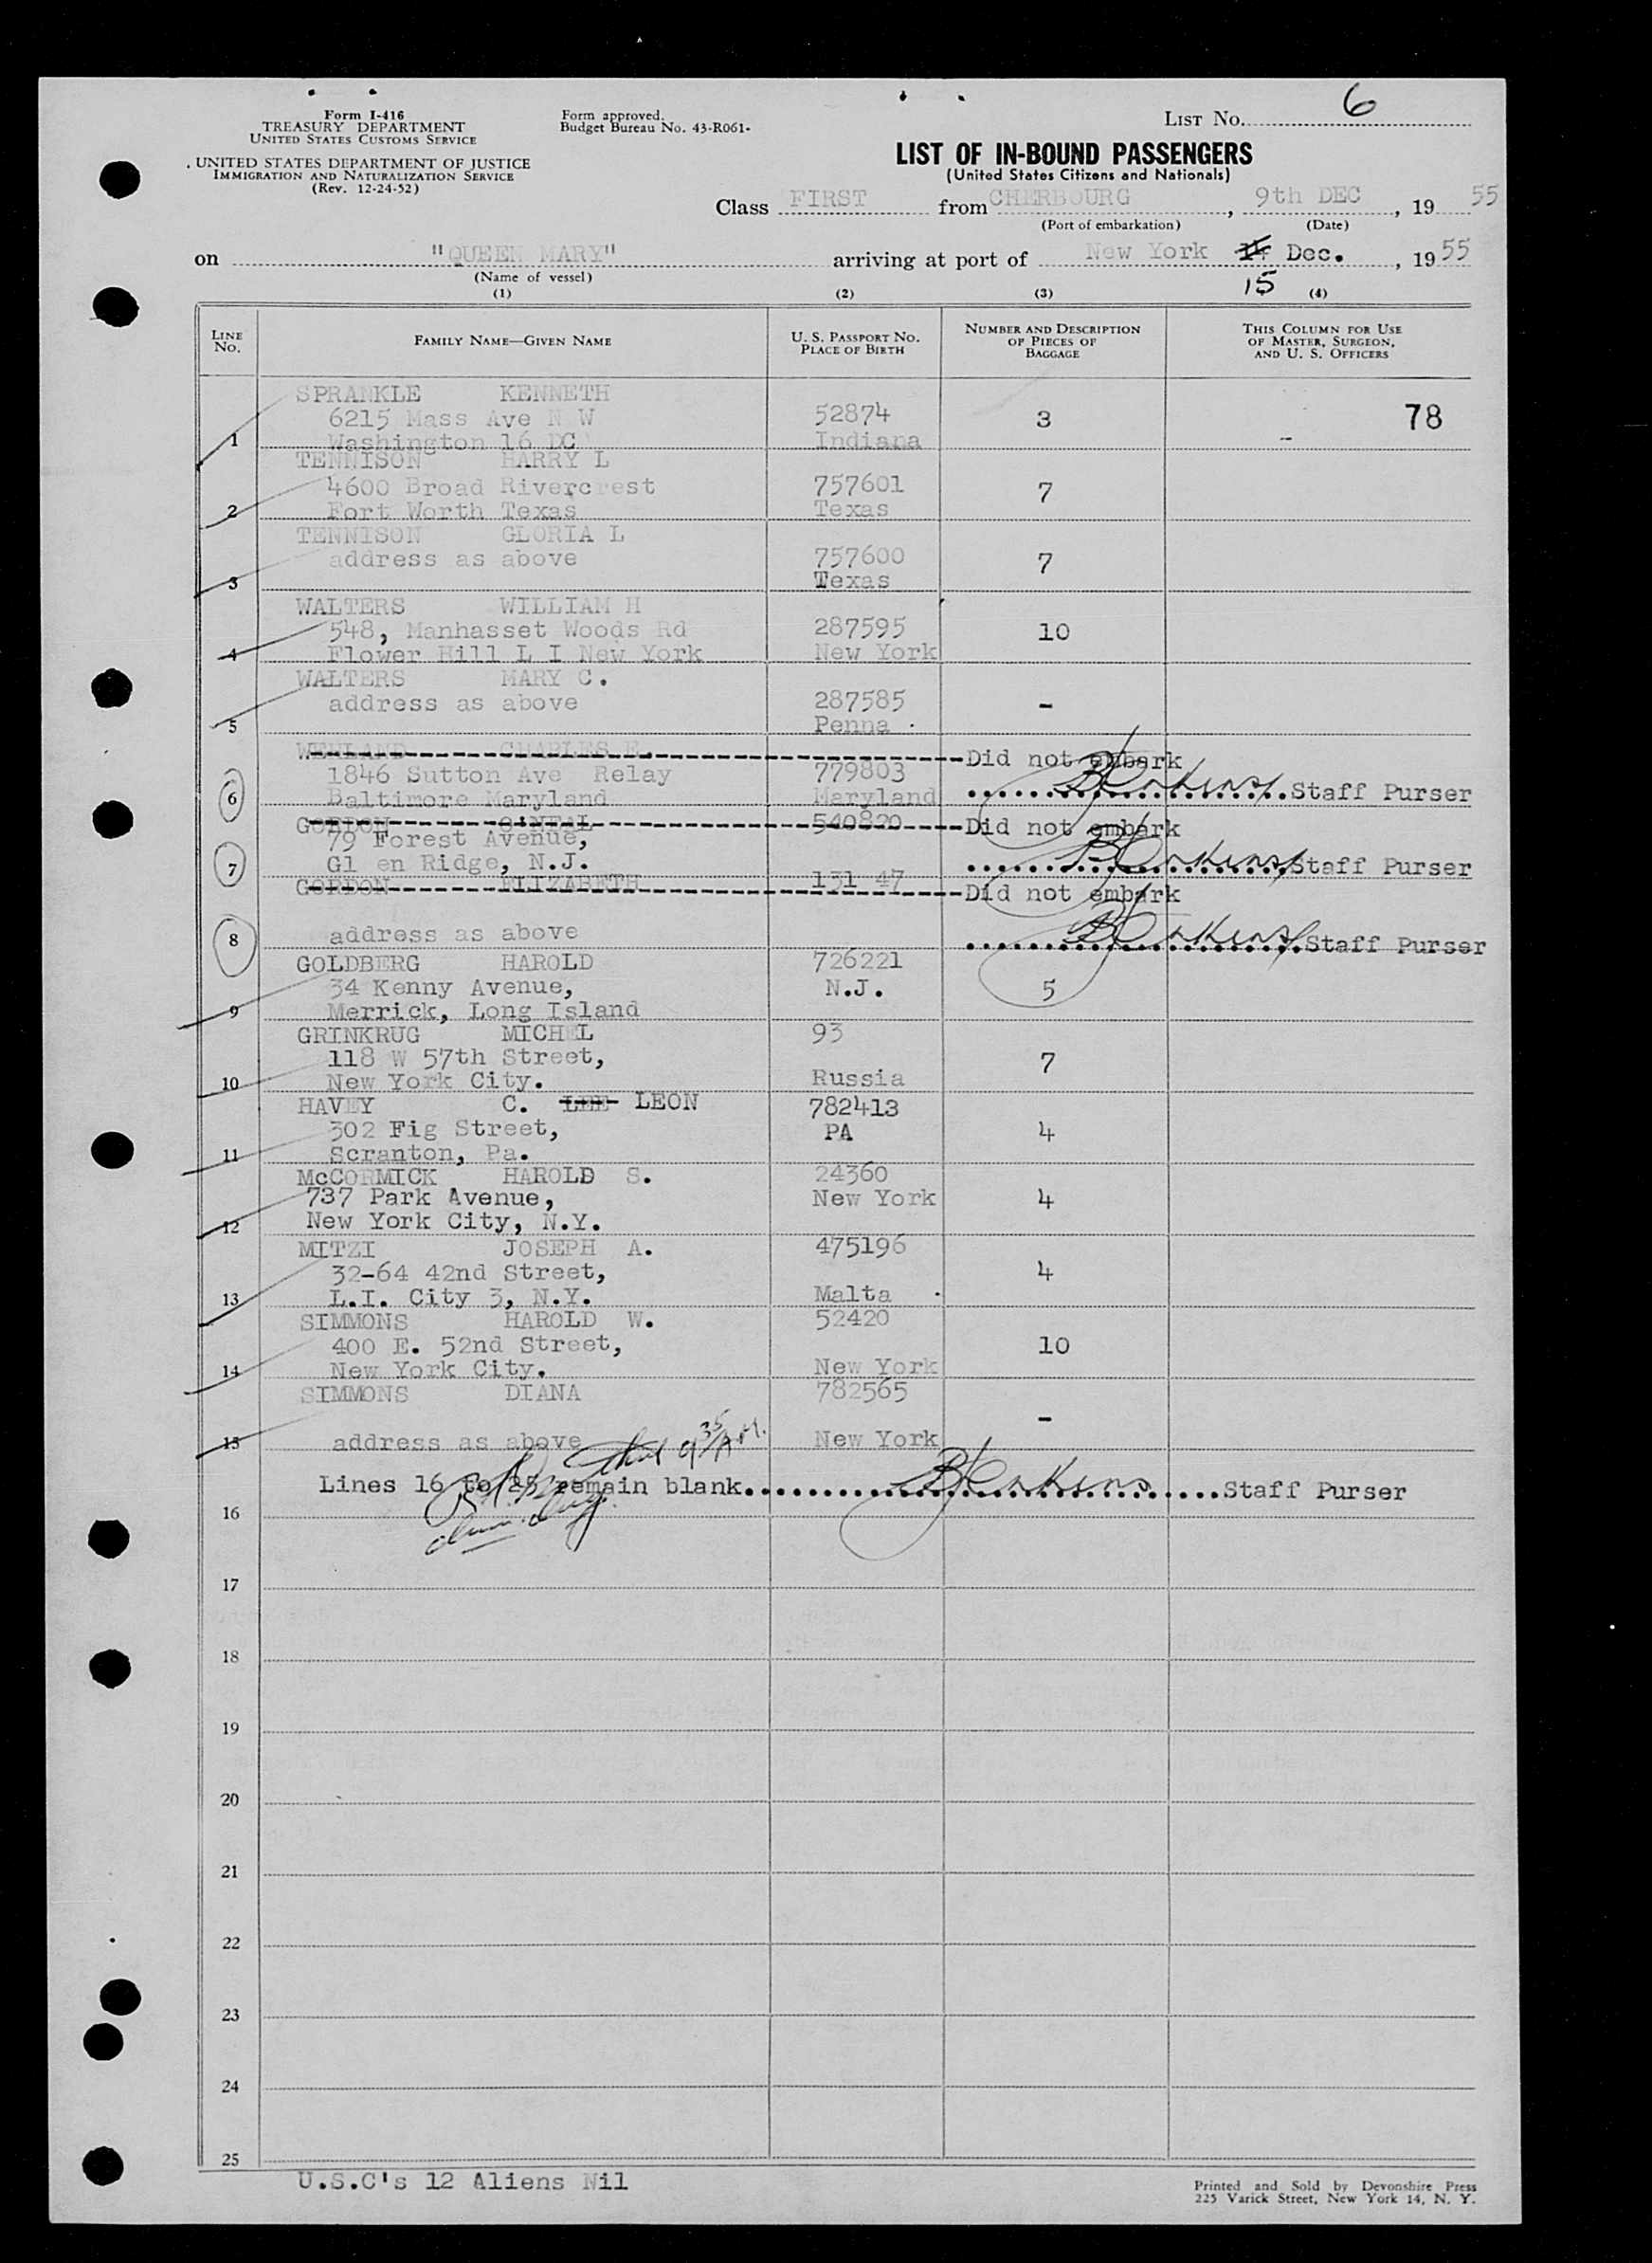 Form I-416
TREASURY DEPARTMENT
UNITED STATES CUSTOMS SERVICE
UNITED STATES DEPARTMENT OF JUSTICE
IMMIGRATION AND NATURALIZATION SERVICE
(Rev. 12-24-52)
Form approved.
Budget Bureau No. 43-R061-
LIST No. 6
LIST OF IN-BOUND PASSENGERS
(United States Citizens and Nationals)
Class FIRST from CHERBOURG, 9th DEC, 19 55
(Port of embarkation) (Date)
on "QUEEN MARY" arriving at port of New York 14 Dec., 19 55
(Name of vessel) 15
(1) (2) (3) (4)
LINE No. FAMILY NAME—GIVEN NAME U. S. PASSPORT No. PLACE OF BIRTH NUMBER AND DESCRIPTION OF PIECES OF BAGGAGE THIS COLUMN FOR USE OF MASTER, SURGEON, AND U. S. OFFICERS
SPRANKLE KENNETH
6215 Mass Ave N W 52874 3 78
1 Washington 16 DC Indiana
TENNISON HARRY L
4600 Broad Rivercrest 757601 7
2 Fort Worth Texas Texas
TENNISON GLORIA L
address as above 757600 7
3 Texas
WALTERS WILLIAM H
548, Manhasset Woods Rd 287595 10
4 Flower Hill L I New York New York
WALTERS MARY C.
address as above 287585 -
5 Penna .
CHARLES E. Did not embark
1846 Sutton Ave Relay 779803
6 Baltimore Maryland Maryland BJenkins Staff Purser
GORDON O'NEAL 540820 Did not embark
79 Forest Avenue,
7 Gl en Ridge, N.J. BJenkins Staff Purser
GORDON ELIZABETH 131 47 Did not embark
8 address as above BJenkins Staff Purser
GOLDBERG HAROLD 726221
34 Kenny Avenue, N.J. 5
9 Merrick, Long Island
GRINKRUG MICHEL 93
118 W 57th Street, 7
10 New York City. Russia
HAVEY C. LEE LEON 782413
302 Fig Street, PA 4
11 Scranton, Pa.
McCORMICK HAROLD S. 24360
737 Park Avenue, New York 4
12 New York City, N.Y.
MITZI JOSEPH A. 475196
32-64 42nd Street, 4
13 L.I. City 3, N.Y. Malta .
SIMMONS HAROLD W. 52420
400 E. 52nd Street, 10
14 New York City. New York
SIMMONS DIANA 782565
-
15 address as above New York
9 35 A.M.
Lines 16 to 25 remain blank BJenkins Staff Purser
16
17
18
19
20
21
22
23
24
25
U.S.C's 12 Aliens Nil
Printed and Sold by Devonshire Press
225 Varick Street, New York 14, N. Y.